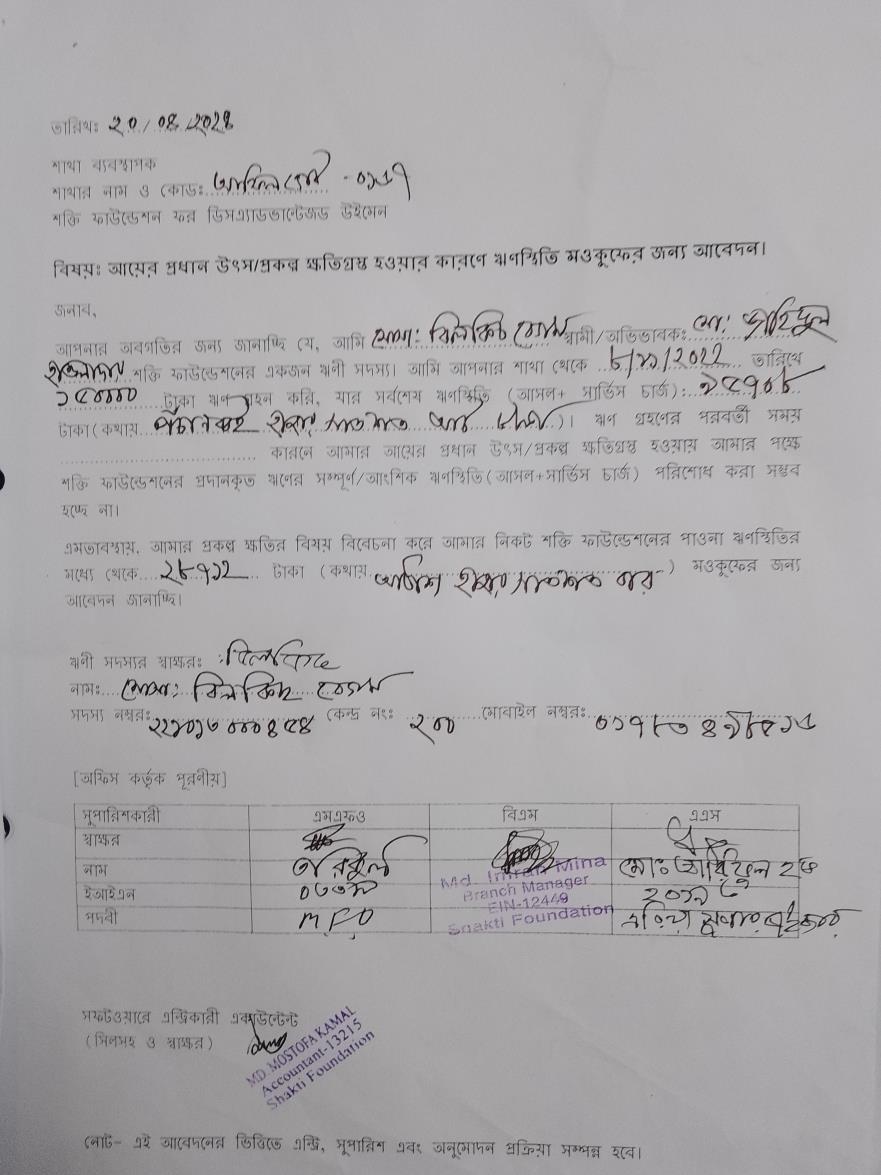 তারিখঃ ২০/০৪/২০২৪
শাখা ব্যবস্থাপক
শাখার নাম ও কোডঃ
শক্তি ফাউন্ডেশন ফর ডিসএ্যাডভান্টেজড উইমেন
বিষয়ঃ আয়ের প্রধান উৎস/প্রকল্প ক্ষতিগ্রস্ত হওয়ার কারণে ঋণস্থিতি মওকুফের জন্য আবেদন।
জনাব,
আপনার অবগতির জন্য জানাচ্ছি যে, আমি মোছাঃ বিলকিছ বেগম স্বামী/অভিভাবকঃ মোঃ
শক্তি ফাউন্ডেশনের একজন ঋণী সদস্য। আমি আপনার শাখা থেকে ৮/১১/২০২২ তারিখে
১৫০০০০ টাকা ঋণ গ্রহন করি, যার সর্বশেষ ঋণস্থিতি (আসল+ সার্ভিস চার্জ): ৯৫৭০৮
টাকা(কথায় পঁচানব্বই হাজার সাতশত আট টাকা)। ঋণ গ্রহণের পরবর্তী সময়
কারনে আমার আয়ের প্রধান উৎস/প্রকল্প ক্ষতিগ্রস্ত হওয়ায় আমার পক্ষে
শক্তি ফাউন্ডেশনের প্রদানকৃত ঋণের সম্পূর্ণ/আংশিক ঋণস্থিতি(আসল+সার্ভিস চার্জ) পরিশোধ করা সম্ভব
হচ্ছে না।
এমতাবস্থায়, আমার প্রকল্প ক্ষতির বিষয় বিবেচনা করে আমার নিকট শক্তি ফাউন্ডেশনের পাওনা ঋণস্থিতির
মধ্যে থেকে ২৮৭১২ টাকা (কথায় হাজার সাতশত বার) মওকুফের জন্য
আবেদন জানাচ্ছি।
ঋণী সদস্যর স্বাক্ষরঃ বিলকিছ
নামঃ মোছাঃ বিলকিছ বেগম
সদস্য নম্বরঃ কেন্দ্র নংঃ ২০০ মোবাইল নম্বরঃ
[অফিস কর্তৃক পূরনীয়]
সুপারিশকারী এমএফও বিএম এএস
স্বাক্ষর
নাম Md. Imran Mina
Branch Manager
ইআইএন EIN-12449
পদবী MFO Shakti Foundation
সফটওয়ারে এন্ট্রিকারী একাউন্টেন্ট
(সিলসহ ও স্বাক্ষর)
MD. MOSTOFA KAMAL
Accountant-13215
Shakti Foundation
নোট- এই আবেদনের ভিত্তিতে এন্ট্রি, সুপারিশ এবং অনুমোদন প্রক্রিয়া সম্পন্ন হবে।